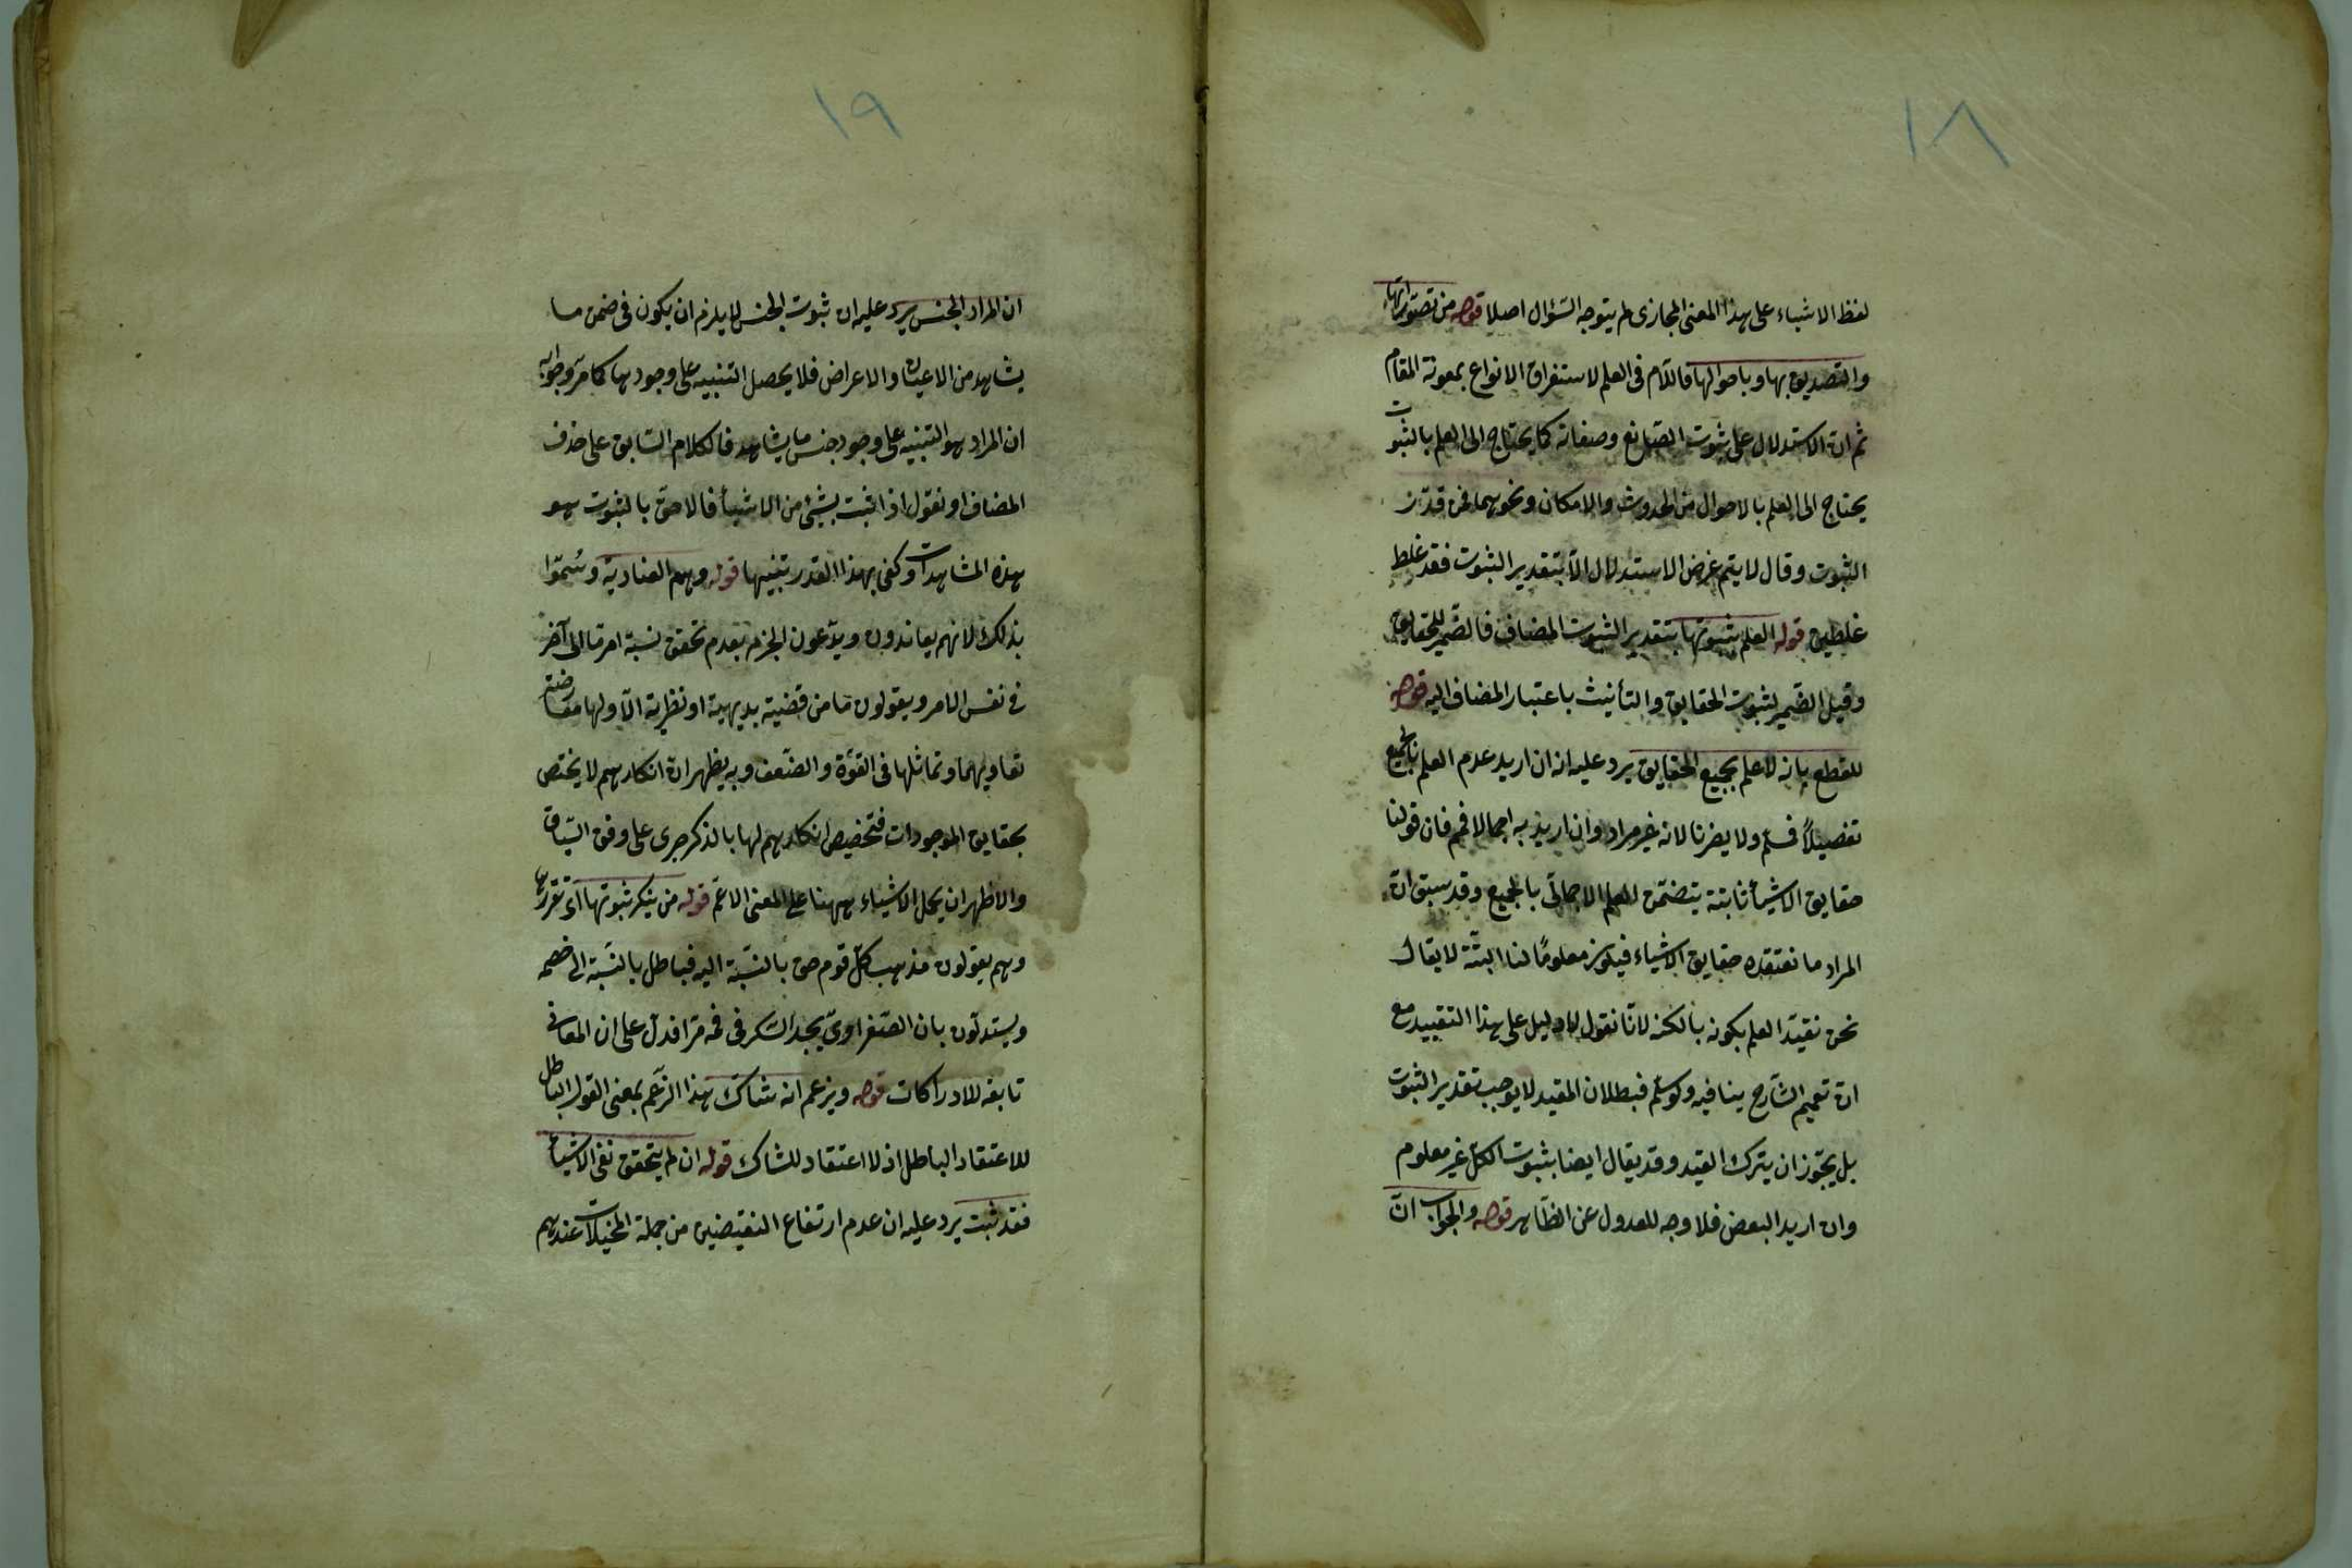 ١٨
لفظ الاشياء على هذا المعنى المجازى لم يتوجه السّؤال اصلا قوله من تصوّراتها
والتصديق بها وباحوالها فاللّام فى العلم لاستغراق الانواع بمعونة المقام
ثم ان الاستدلال على ثبوت الصّانع وصفاته كما يحتاج الى العلم بالثبوت
يحتاج الى العلم بالاحوال من الحدوث والامكان ونحوهما فمن قدّر
الثبوت وقال لا يتم غرض الاستدلال الّا بتقدير الثبوت فقد غلط
غلطين قوله العلم بثبوتها بتقدير الثبوت المضاف فالضّمير للحقايق
وقيل الضّمير لثبوت الحقايق والتأنيث باعتبار المضاف اليه قوله
للقطع بانه لا علم بجميع الحقايق يرد عليه انه ان اريد عدم العلم بالجميع
تفصيلاً فمسلّم ولا يضرنا لانه غير مراد وان اريد به اجمالا فمم فان قولنا
حقايق الاشيأ ثابتة يتضمّن العلم الاجمالّى بالجميع وقد سبق انّ
المراد ما نعتقده حقايق الاشياء فيكون معلومًا لنا البتّة لا يقال
نحن نقيّد العلم بكونه بالكنه لانّا نقول لا دليل على هذا التقييد مع
انّ تعميم الشّارح ينافيه ولو سُلّم فبطلان المقيد لا يوجب تقدير الثبوت
بل يجّوز ان يترك القيد وقد يقال ايضا بثبوت الكلّ غير معلوم
وان اريد البعض فلا وجه للعدول عن الظّاهر قوله والجواب انّ
١٩
ان المراد الجنس يرد عليه ان ثبوت الجنس لا يلزم ان يكون فى ضمن ما
يشاهد من الاعيان والاعراض فلا يحصل التنبيه على وجودها كما مرّ وجوابه
ان المراد هو التنبيه على وجود جنس ما يشاهد فالكلام السّابق على حذف
المضاف او نقول اذا ثبت شئ من الاشيأ فالاحق بالثبوت هو
هذه المشاهدات وكفى بهذا القدر تنبيها قوله وهم العناديّة وسُمّوا
بذلك لانهم يعاندون ويدّعون الجزم بعدم تحقق نسبة امر ما الى آخر
فى نفس الامر ويقولون ما من قضية بديهية او نظرية الّا ولها معارضة
تقاومها وتماثلها فى القوّة والضّعف وبه يظهر انّ انكارهم لا يختص
بحقايق الموجودات فتخصيص انكارهم لها بالذكر جرى على وفق السّياق
والاظهر ان يحمل الاشياء ههنا على المعنى الاعّم قوله من ينكر ثبوتها اى تقررها
وهم يقولون مذهب كلّ قوم حق بالنّسبة اليه فباطل بالنّسبة الى خصمه
ويستدلّون بان الصّفراوىّ يجد السّكر فى فمه مرّا فدلّ على ان المعانى
تابعة للادراكات قوله ويزعم انه شاكّ هذا الزّعم بمعنى القول الباطل
للاعتقاد الباطل اذ لا اعتقاد للشاك قوله ان لم يتحقق نفى الاشيأ
فقد ثبت يرد عليه ان عدم ارتفاع النقيضين من جملة المخيلات عندهم